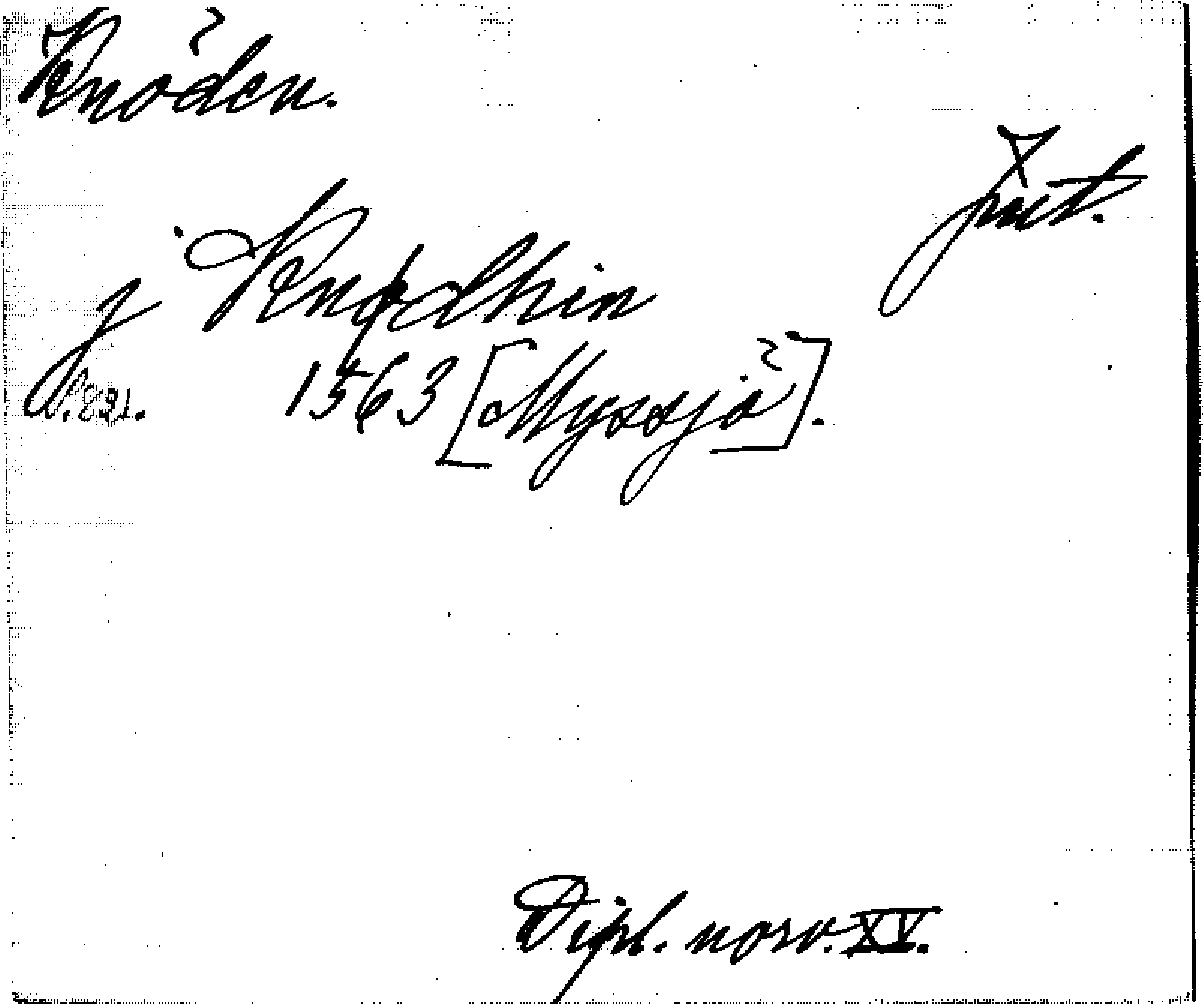 Knöden.
Jmt.
j Knødhin
S. 821. 1563 [Myssjö].
Dipl. norv. XV.